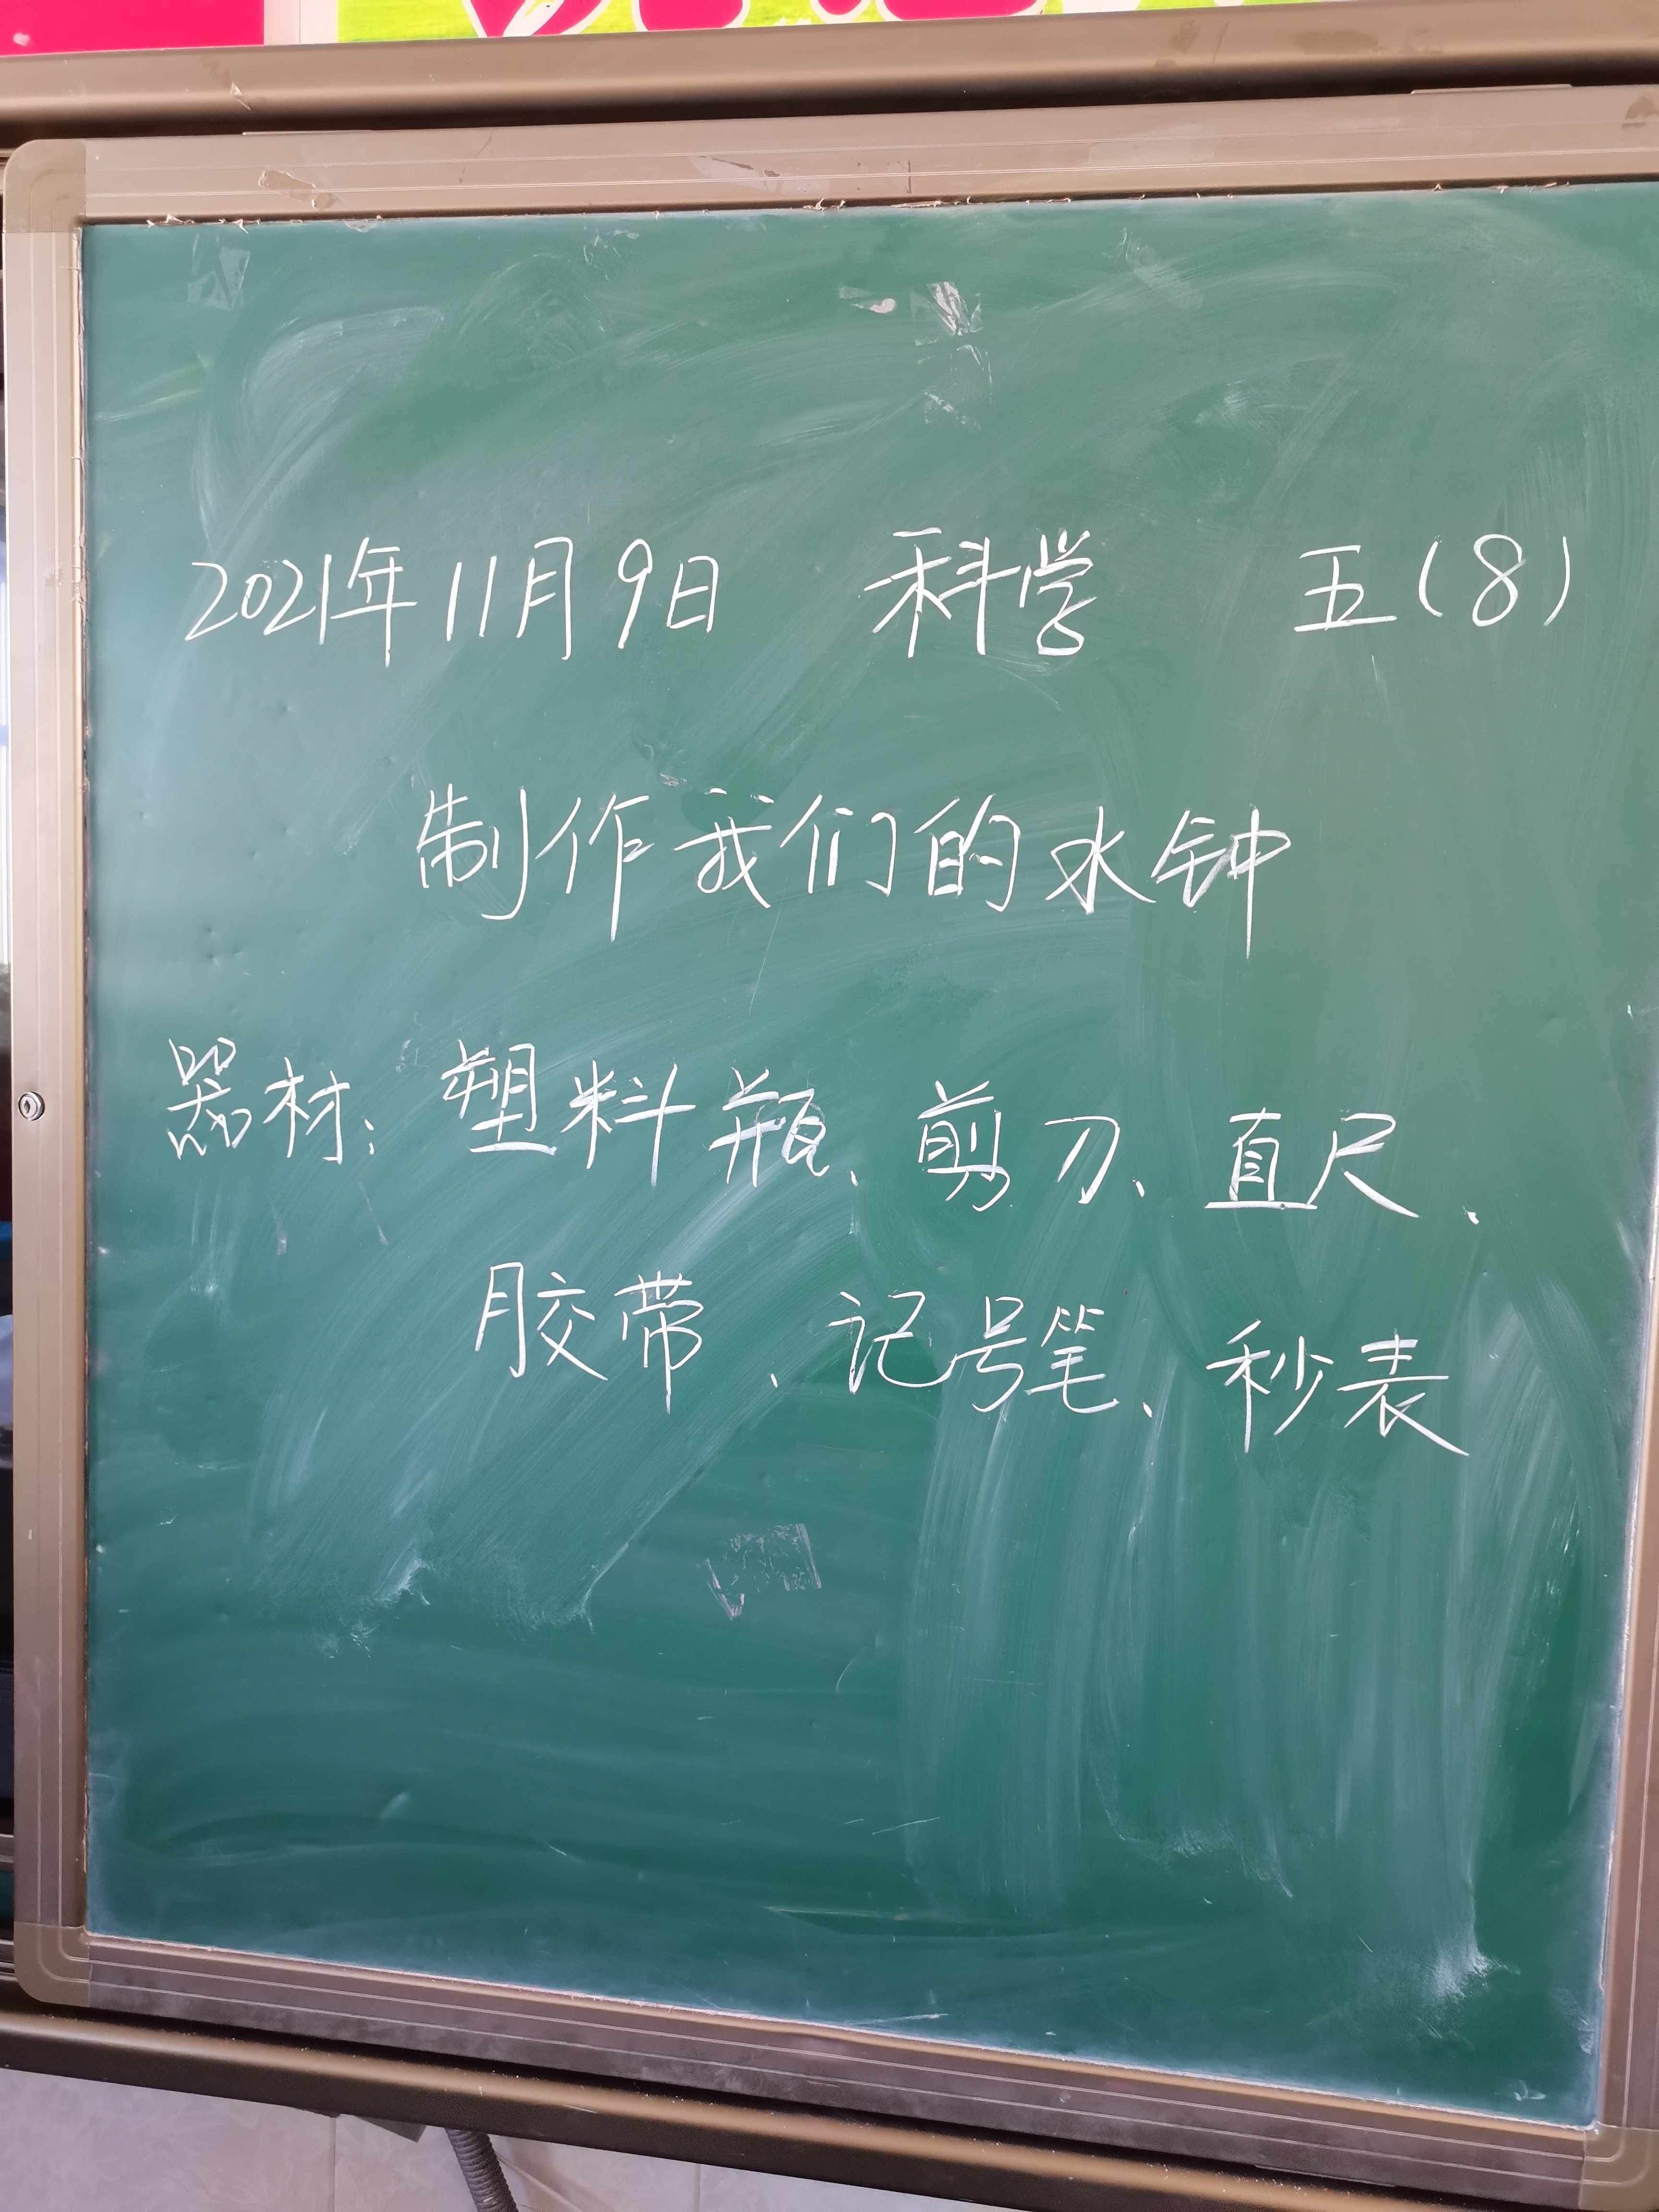 2021年11月9日 科学 五(8)
制作我们的水钟
器材：塑料瓶、剪刀、直尺、
胶带、记号笔、秒表